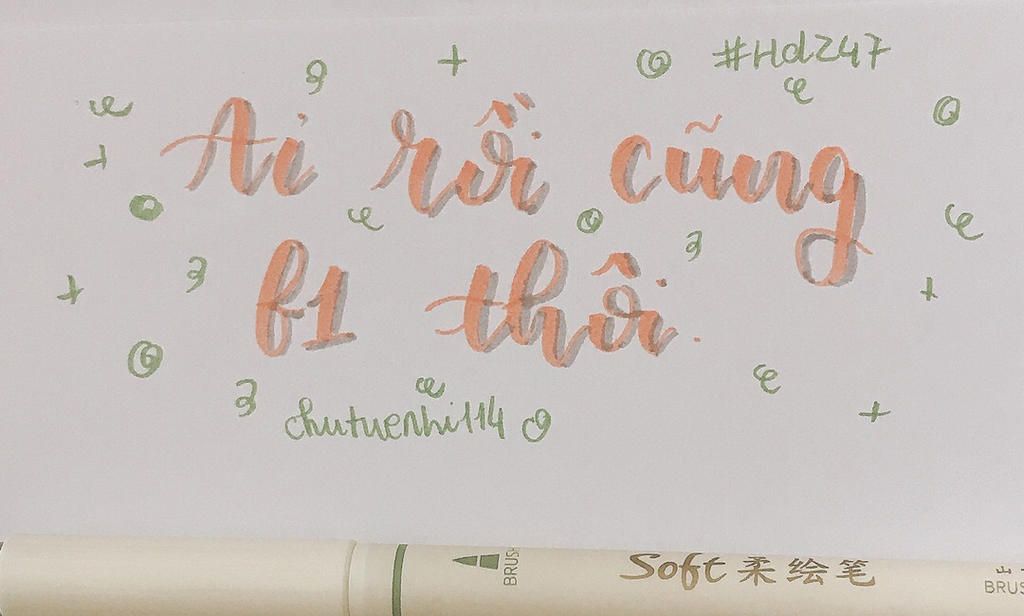 #Hd247
Ai rồi cũng
f1 thôi.
chutuenhi114
BRUSH
Soft 柔绘笔
BRUS